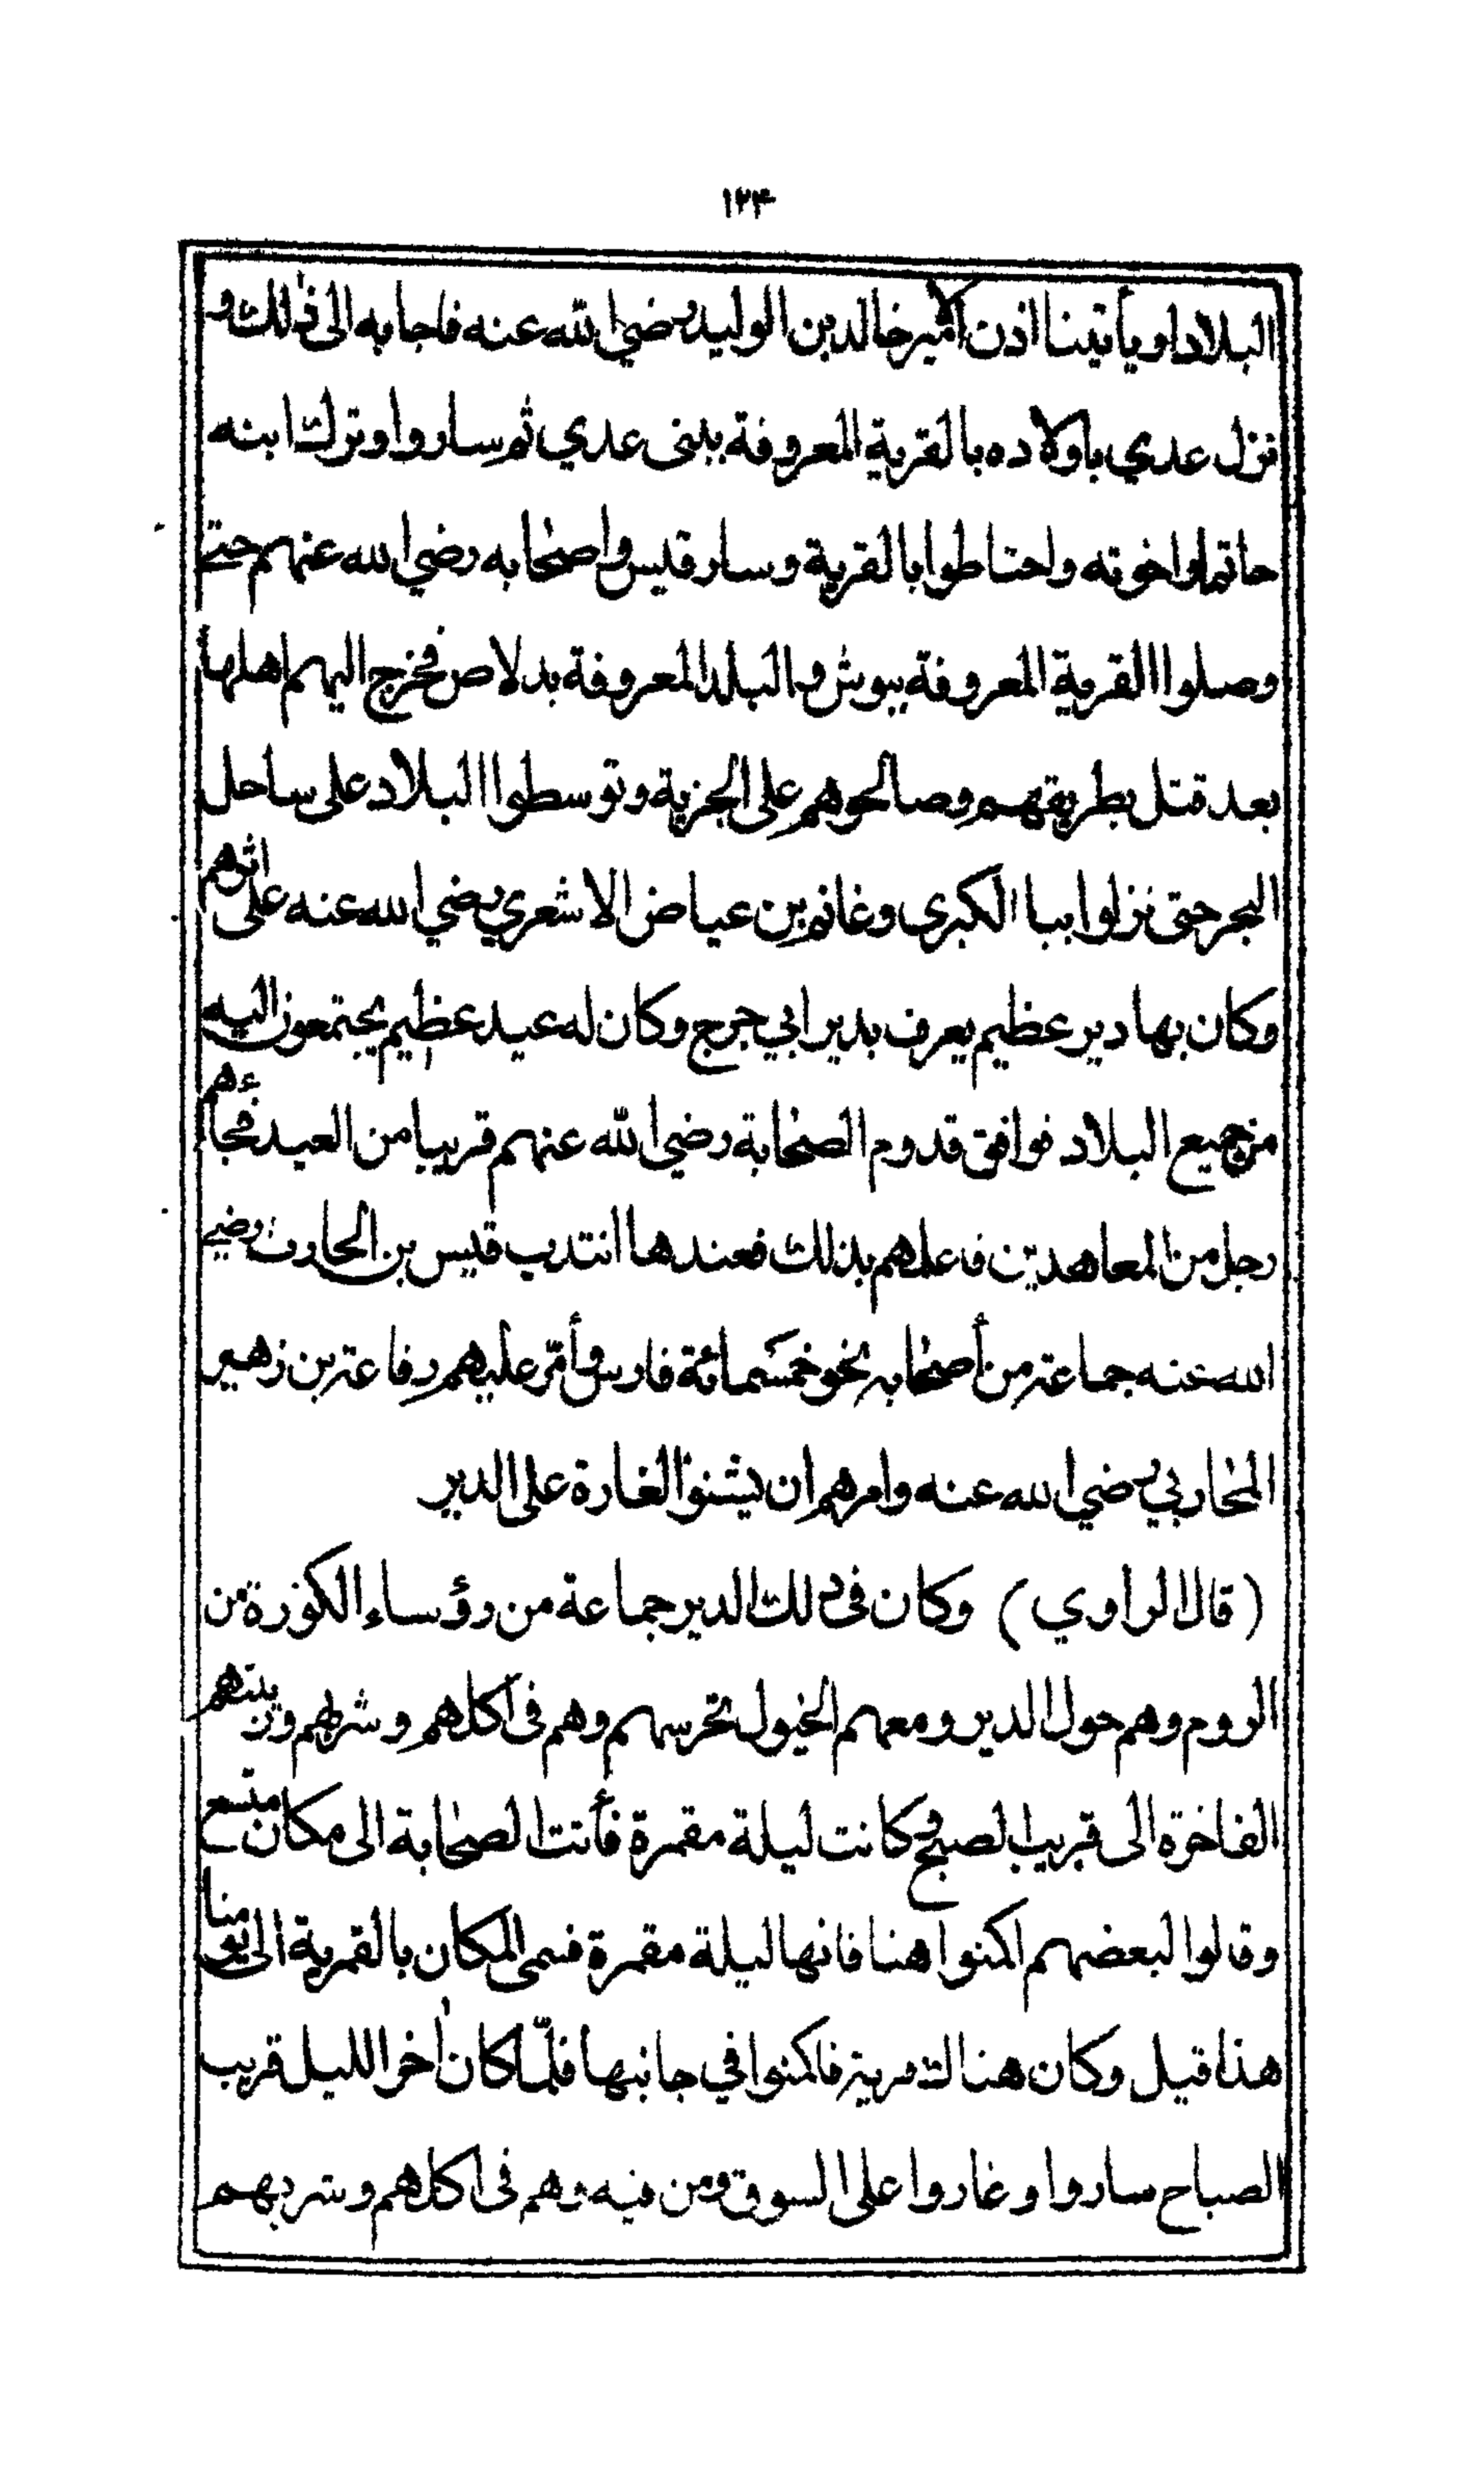 ١٢٤
البلاد او يأتينا اذن الامير خالد بن الوليد رضي الله عنه فاجابه الى ذلك و
نزل عدي باولاده بالقرية المعروفة ببنى عدي ثم ساروا وترك ابنه
حاتما واخوته واحتاطوا بالقرية وسار قيس واصحابه رضي الله عنهم حتى
وصلوا القرية المعروفة ببوش والبلد المعروفة بدلاص فخرج اليهم اهلها
بعد قتل بطريقهم وصالحوهم على الجزية وتوسطوا البلاد على ساحل
البحر حتى نزلوا ببا الكبرى وغانم بن عياض الاشعري رضي الله عنه على اثرهم
وكان بها دير عظيم يعرف بدير ابي جرج وكان له عيد عظيم يجتمعون اليه
من جميع البلاد فوافق قدوم الصحابة رضي الله عنهم قريبا من العيد فجاءهم
رجل من المعاهدين فاعلمهم بذلك فعندها انتدب قيس بن الحارث رضي
الله عنه جماعة من أصحابه نحو خمسمائة فارس وأمّر عليهم رفاعة بن زهير
المحاربي رضي الله عنه وامرهم ان يشنوا الغارة على الدير
(قال الراوي) وكان فى ذلك الدير جماعة من رؤساء الكفرة من
الروم وهم حول الدير ومعهم الخيول تحرسهم وهم فى اكلهم وشربهم وزينتهم
الفاخرة الى قريب الصبح وكانت ليلة مقمرة فأتت الصحابة الى مكان متسع
وقالوا لبعضهم اكمنوا هنا فانها ليلة مقمرة فسمى المكان بالقمرية الى يومنا
هذا قيل وكان هناك قرية فاكمنوا في جانبها فلمّا كان اٰخر الليل قريب
الصباح ساروا وغاروا على السوق ومن فيه وهم فى اكلهم وشربهم